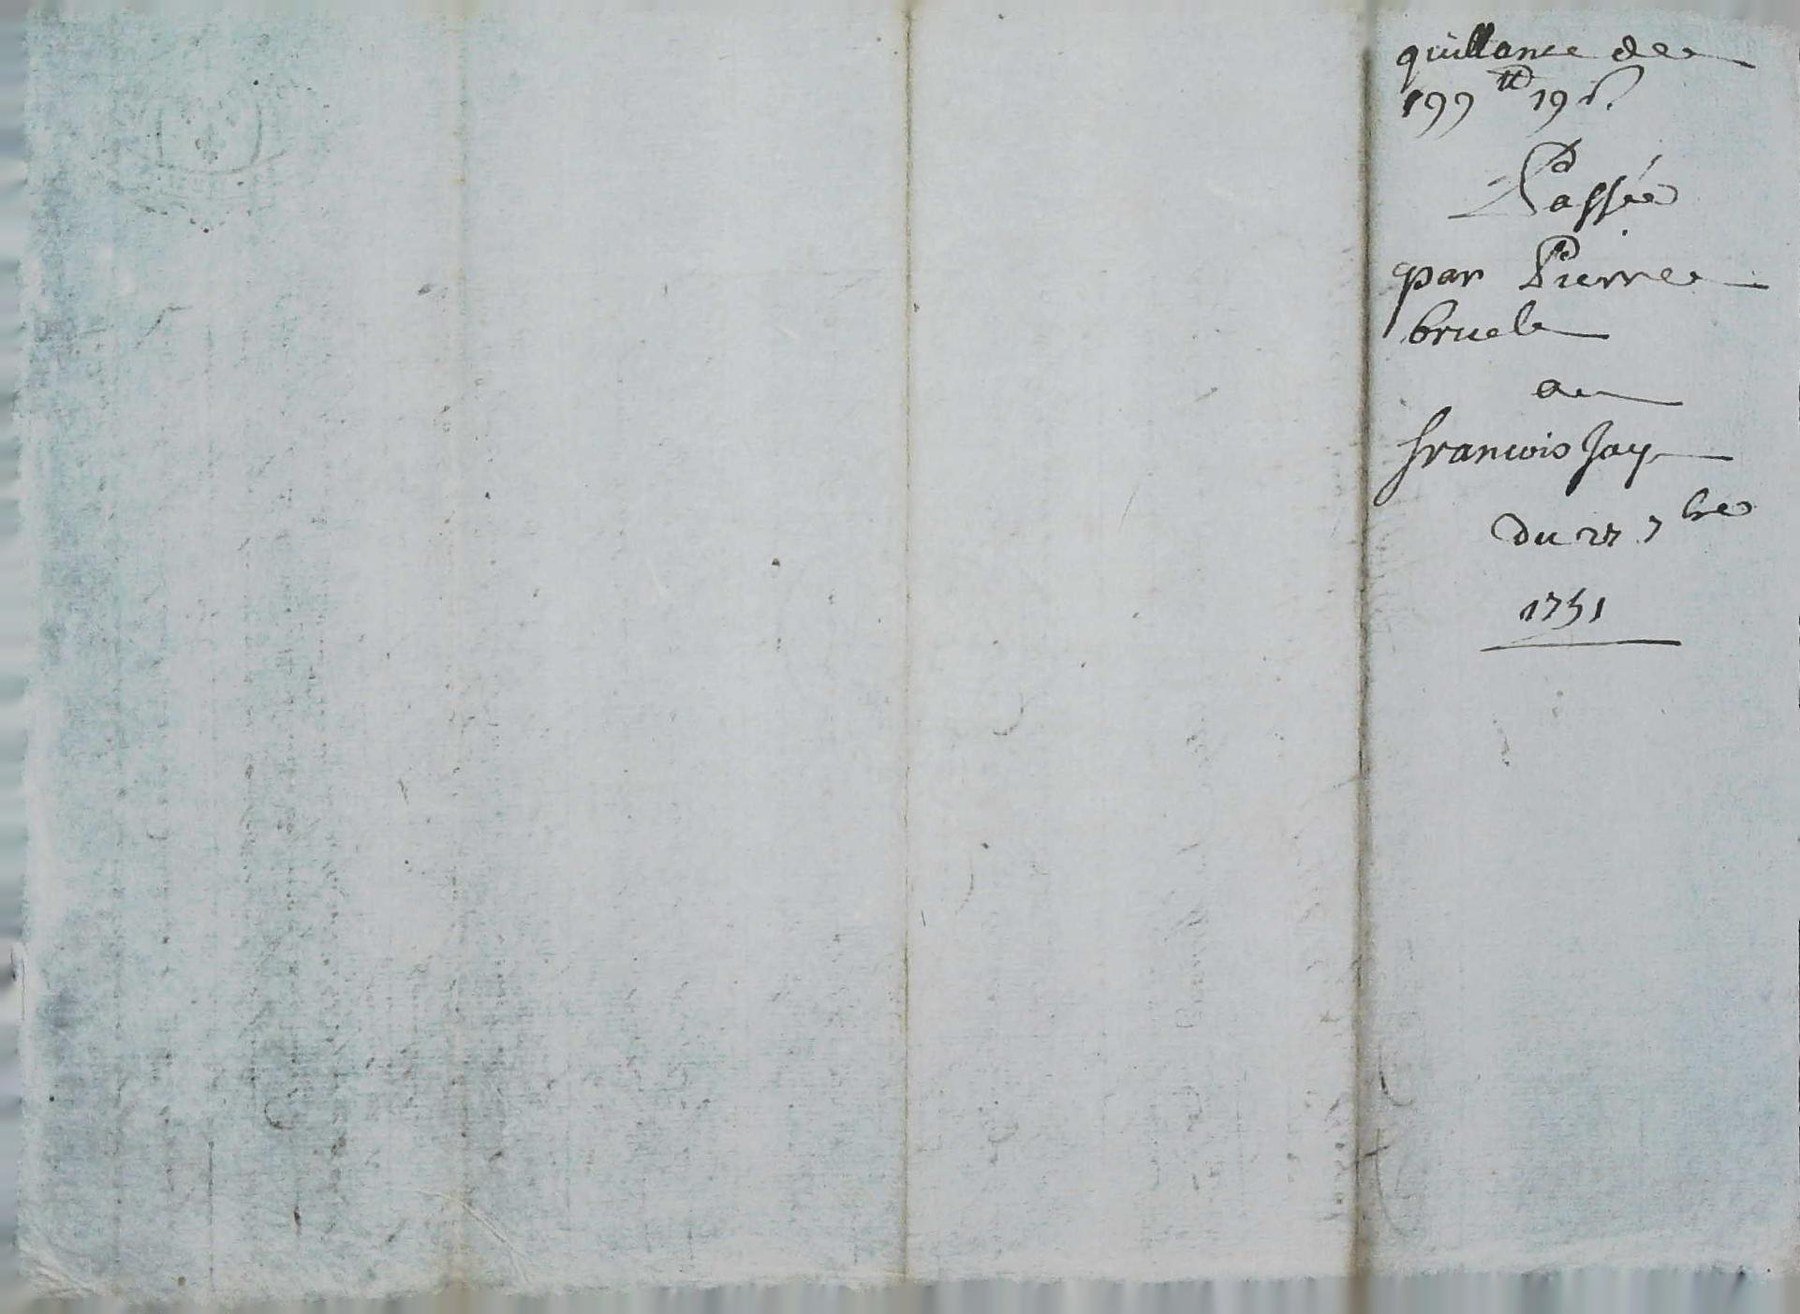 quittance de
199 ₶ 19 s.
Passée
par Pierre
bruel
a
francois Jay
du 27 7bre
1751